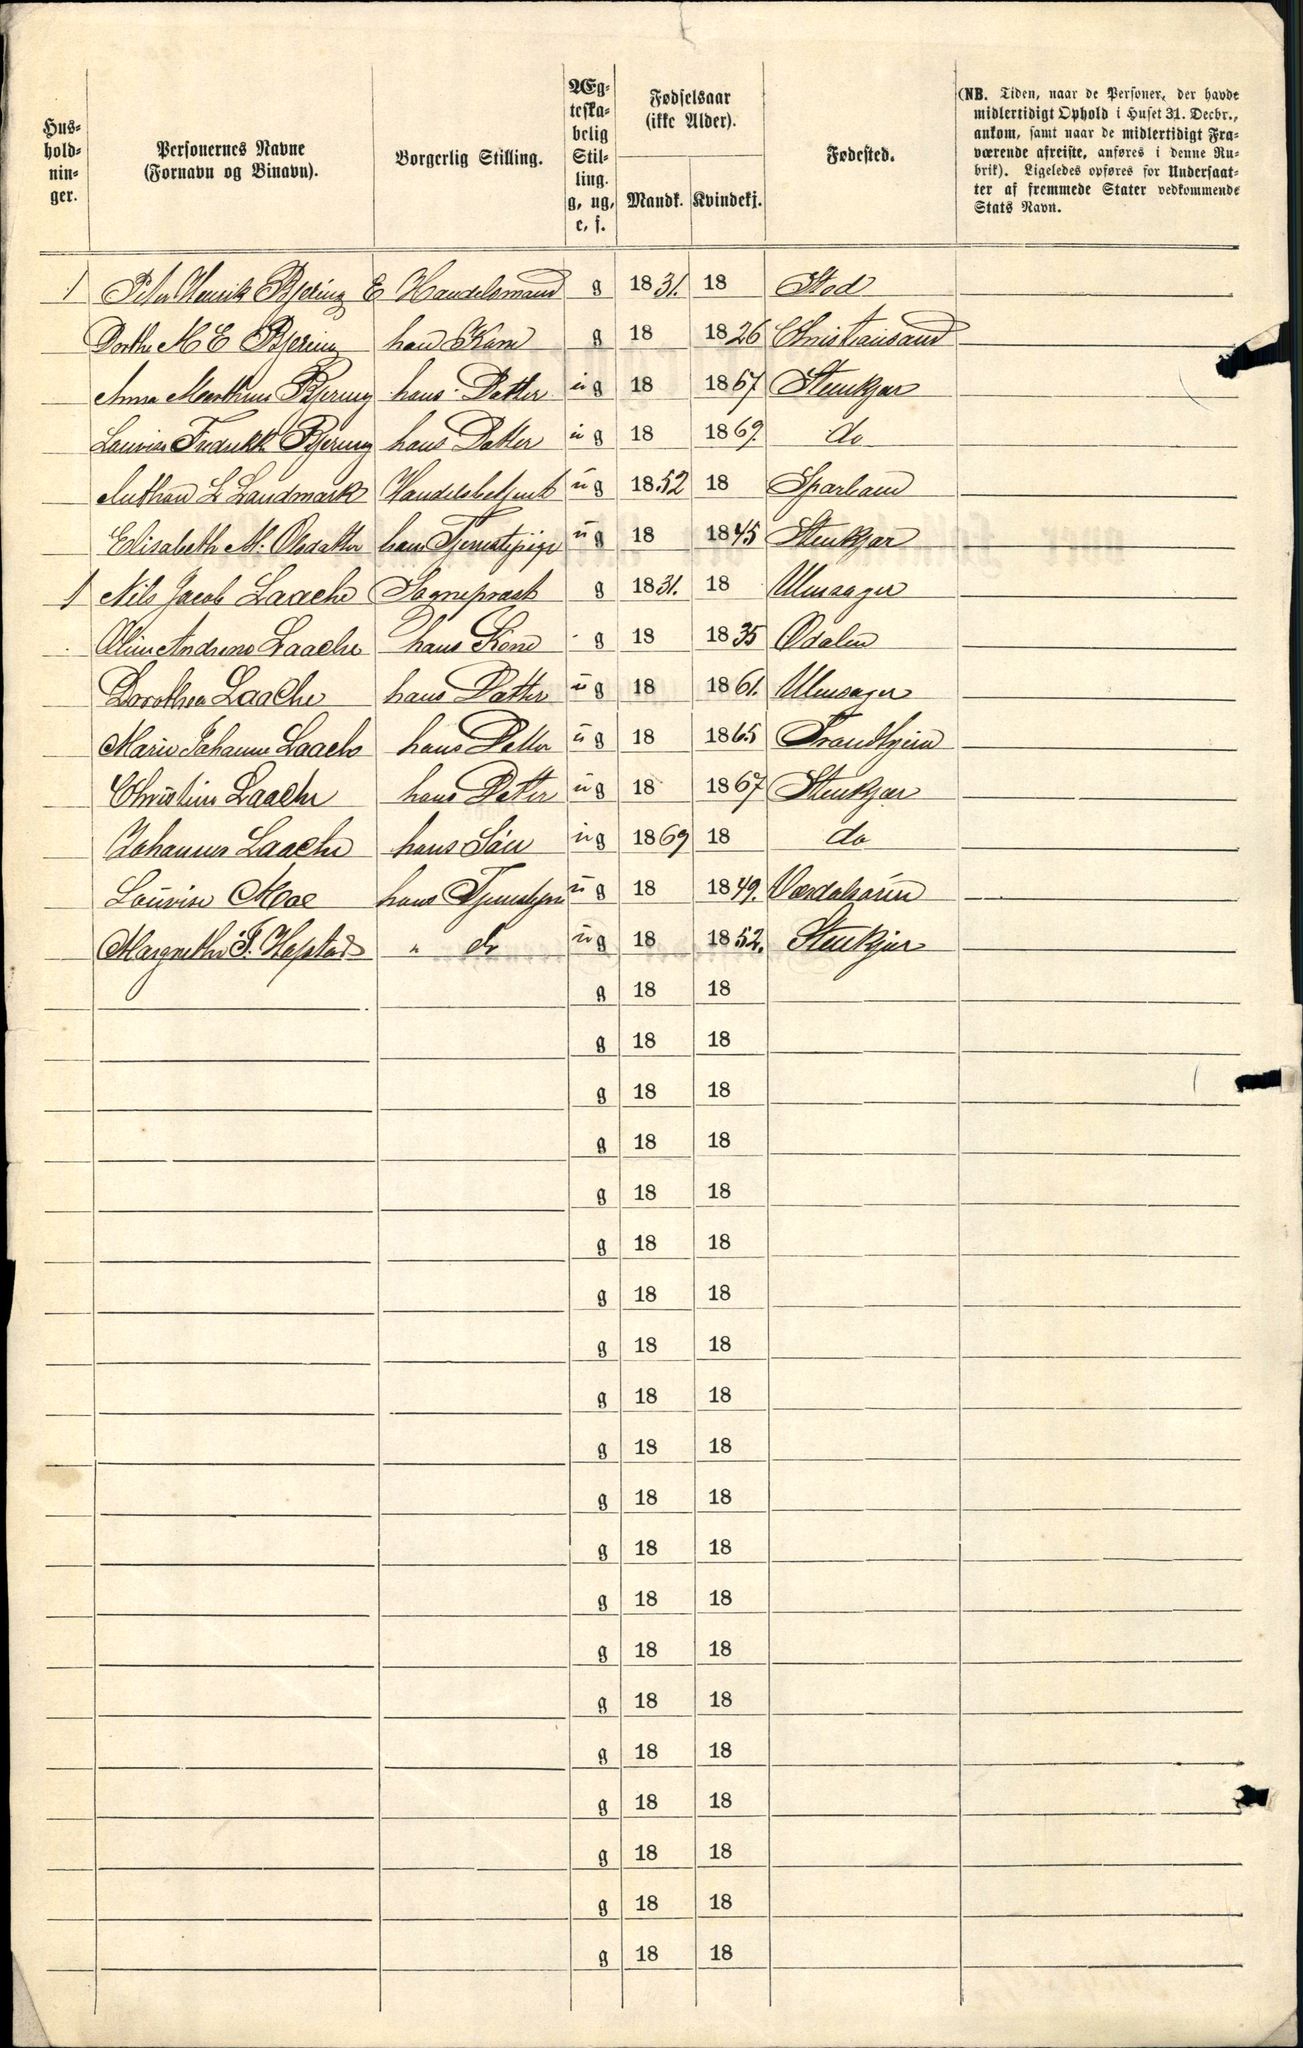 Hus-
hold-
nin-
ger.
Personernes Navne
(Fornavn og Binavn).
Borgerlig Stilling.
Æg-
teska-
belig
Stil-
ling.
g, ug,
e, f.
Fødselsaar
(ikke Alder).
Mandk. Kvindekj.
Fødested.
(NB. Tiden, naar de Personer, der havde
midlertidigt Ophold i Huset 31. Decbr.,
ankom, samt naar de midlertidigt Fra-
værende afreiste, anføres i denne Ru-
brik). Ligeledes opføres for Undersaat-
ter af fremmede Stater vedkommende
Stats Navn.
1 Peter Henrik Bjering E Handelsmand g 1831. 18 Stod
Dorthe M E Bjering han Kone g 18 1826 Christiansand
Anna Marthine Bjering hans Datter ug 18 1867 Stenkjær
Lovise Bjering hans Datter ug 18 1869. do
Anthon L Landmark Handelsbetjent ug 1852 18 Sparbuen
Elisabeth M. Olsdatter hans Tjenestepige ug 18 1845 Stenkjær
1 Nils Jacob Laache Sogneprest g 1831. 18 Ulensager
Oline Andrene Laache hans Kone g 18 1835 Odalen
Dorothea Laache hans Datter ug 18 1861. Ulensager
Marie Johanne Laache hans Datter ug 18 1865 Trondhjem
Christine Laache hans Datter ug 18 1867 Stenkjær
Johannes Laache hans Søn ug 1869 18 do
Lovise Moe hans ug 18 1849. Værdalsøren
Margrethe Hapstad " do ug 18 1852. Stenkjær
g 18 18
g 18 18
g 18 18
g 18 18
g 18 18
g 18 18
g 18 18
g 18 18
g 18 18
g 18 18
g 18 18
g 18 18
g 18 18
g 18 18
g 18 18
g 18 18
g 18 18
g 18 18
g 18 18
g 18 18